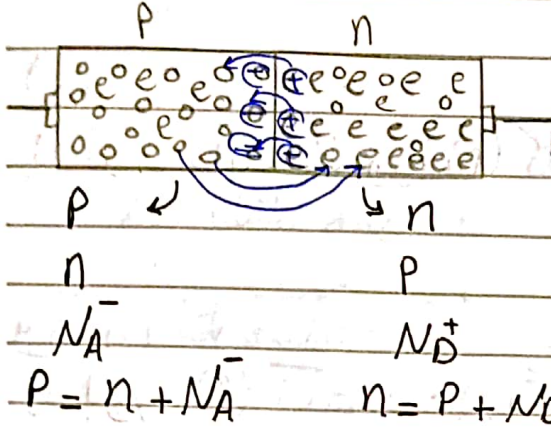 P n
P n
n P
N_A^- N_D^+
P = n + N_A^- n = P + N